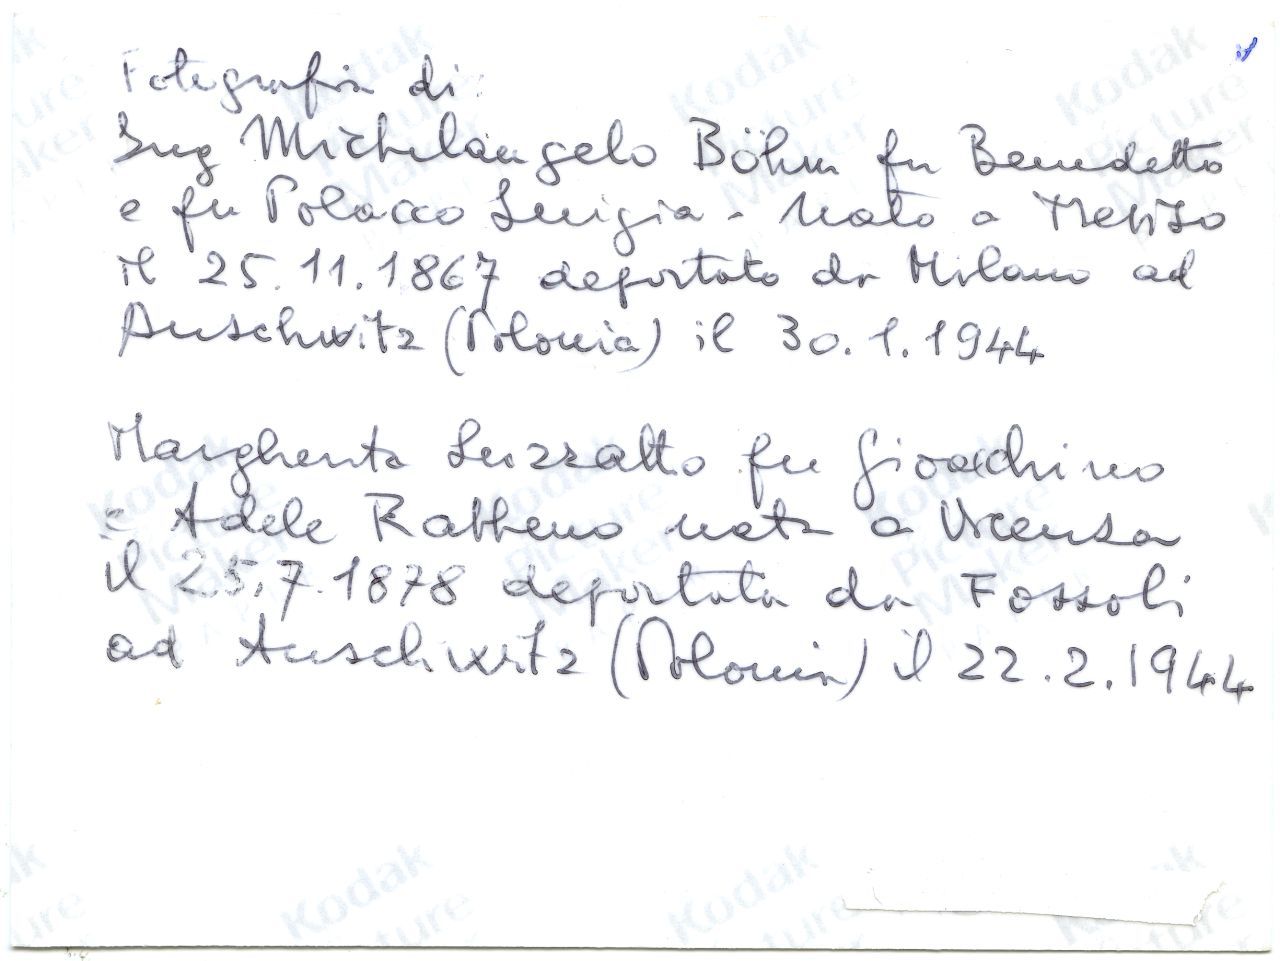 Fotografia di
Ing Michelangelo Böhm fu Benedetto
e fu Polacco Luigia - Nato a Treviso
il 25.11.1867 deportato da Milano ad
Auschwitz (Polonia) il 30.1.1944
Margherita Luzzatto fu Gioachino
e Adele Rabbeno nata a Vicenza
il 25.7.1878 deportata da Fossoli
ad Auschwitz (Polonia) il 22.2.1944
Kodak
Picture
Maker